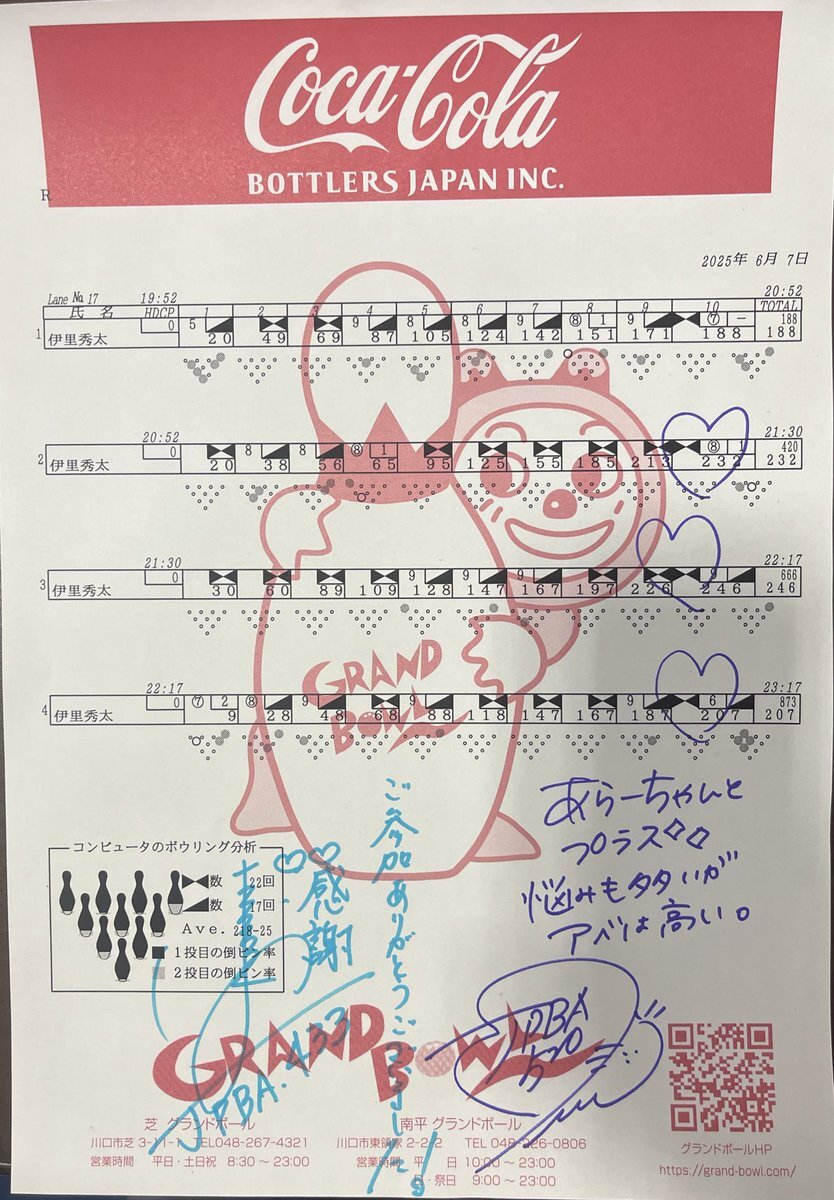 Coca-Cola
BOTTLERS JAPAN INC.
R
2025年 6月 7日
Lane No.17 19:52 20:52
氏 名 HDCP 1 2 3 4 5 6 7 8 9 10 TOTAL
1 伊里秀太 0 5 9 8 8 9 ⑧ 1 9 ⑦ － 188
20 49 69 87 105 124 142 151 171 188 188
20:52 21:30
2 伊里秀太 0 8 8 ⑧ 1 ⑧ 1 420
20 38 56 65 95 125 155 185 213 232 232
21:30 22:17
3 伊里秀太 0 9 9 9 9 666
30 60 89 109 128 147 167 197 226 246 246
22:17 23:17
4 伊里秀太 0 ⑦ 2 ⑧ 9 9 9 6 873
9 28 48 68 88 118 147 167 187 207 207
GRAND
BOWL
コンピュータのボウリング分析
数 22回
数 17回
Ave. 218-25
1投目の倒ピン率
2投目の倒ピン率
ご参加ありがとうございました!
感謝
JPBA.433
あらーちゃんと
プラス
悩みも多いが
アベは高い。
JPBA
GRAND BOWL
芝 グランドボール
川口市芝 3-11-1 TEL048-267-4321
営業時間 平日・土日祝 8:30～23:00
南平 グランドボール
川口市東領家 2-2-2 TEL 048-226-0806
営業時間 平 日 10:00～23:00
日・祭日 9:00～23:00
グランドボールHP
https://grand-bowl.com/